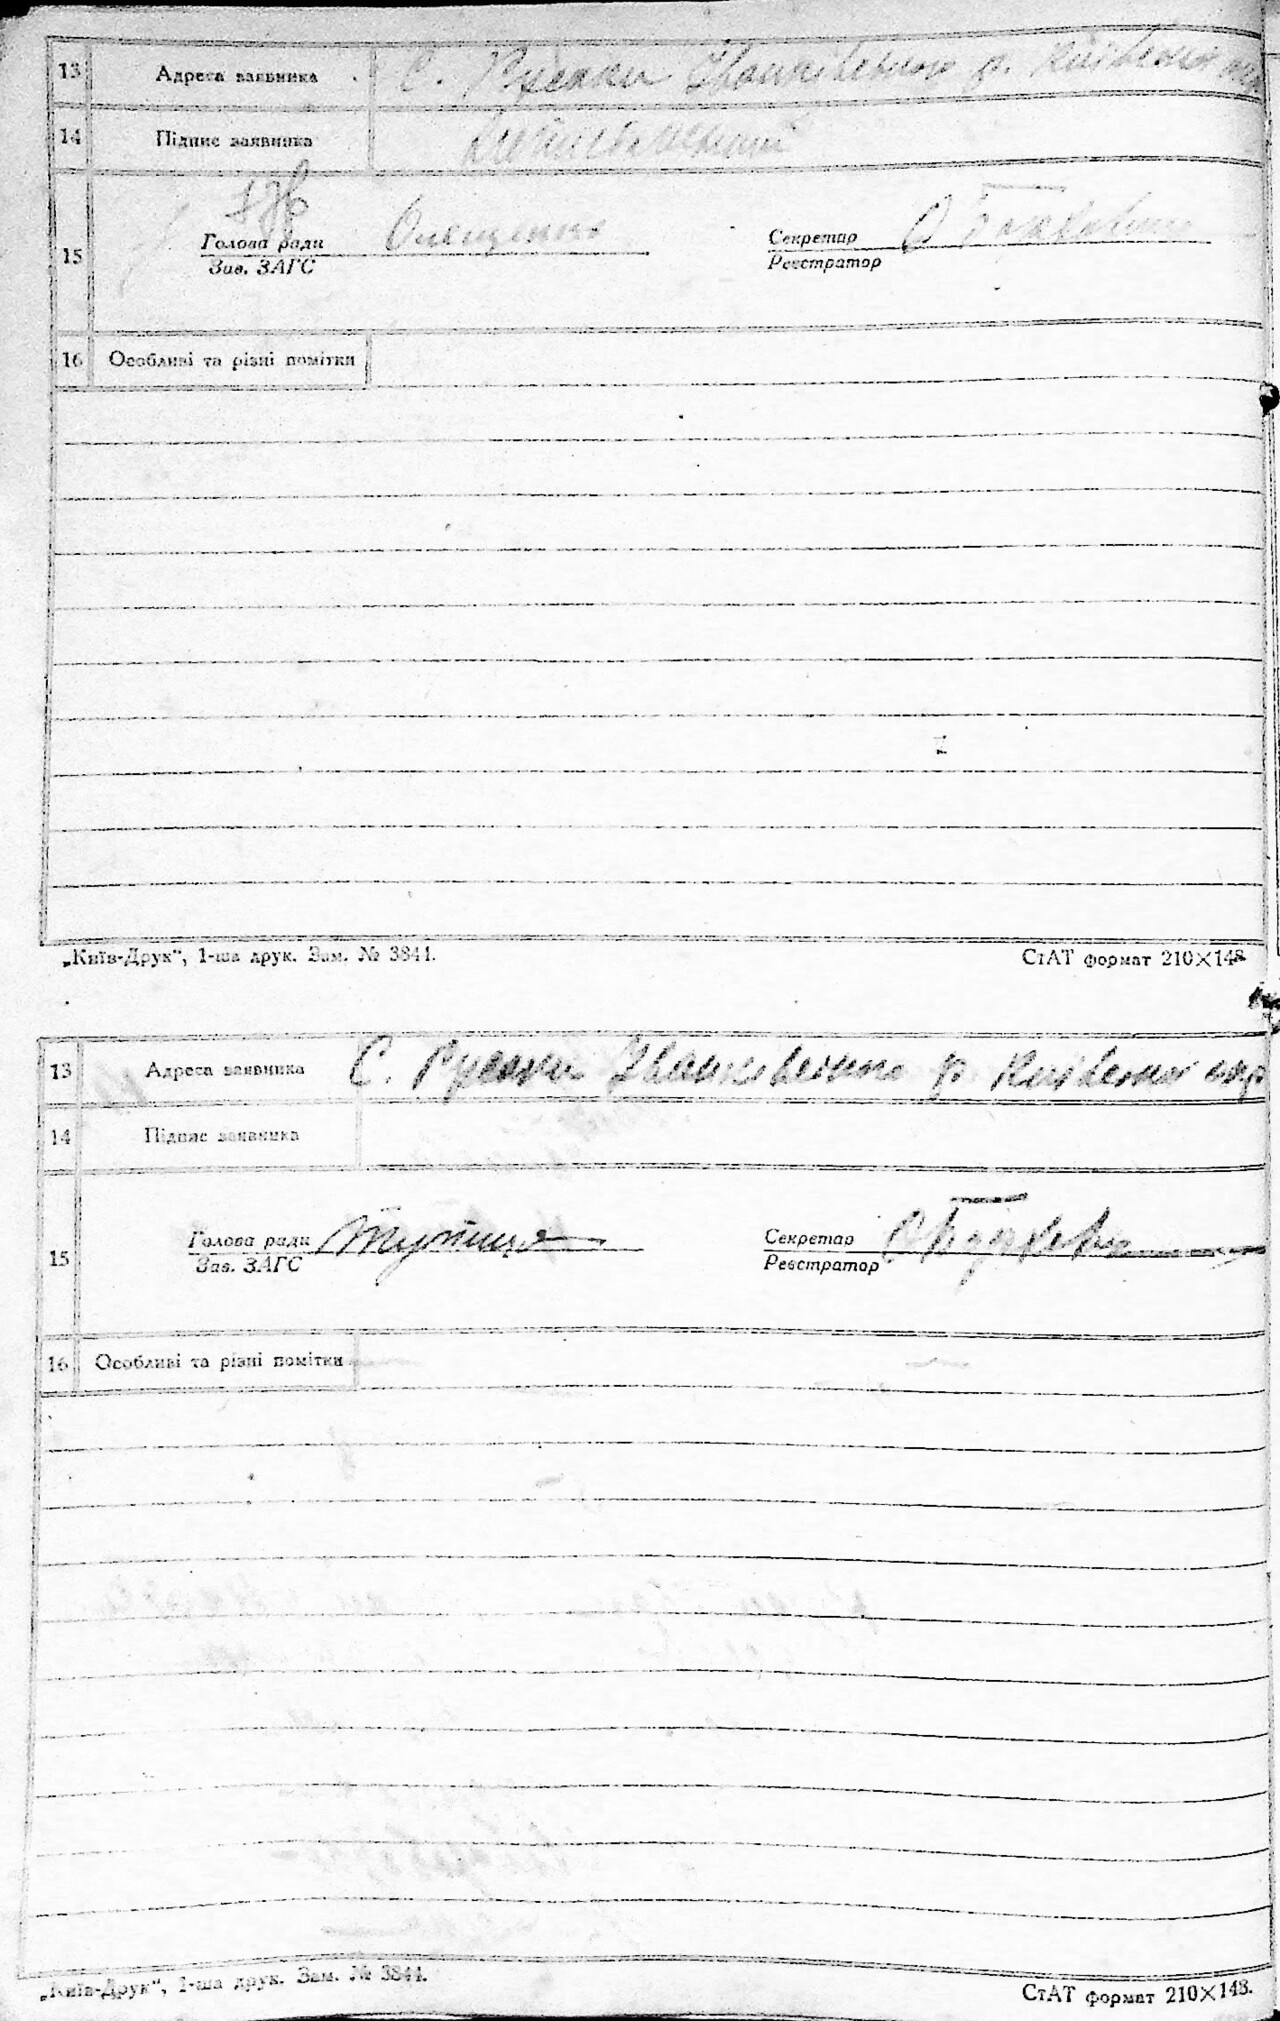 13 Адреса заявника С. Русаки Іванківського р. Київської окр
14 Підпис заявника
15 Голова ради Онищенко Секретар
Зав. ЗАГС Реєстратор
16 Особливі та різні помітки
„Київ-Друк“, 1-ша друк. Зам. № 3844. СтАТ формат 210×148.
13 Адреса заявника С. Русаки Іванківського р. Київської окр
14 Підпис заявника
15 Голова ради Секретар
Зав. ЗАГС Реєстратор
16 Особливі та різні помітки
„Київ-Друк“, 1-ша друк. Зам. № 3844. СтАТ формат 210×148.